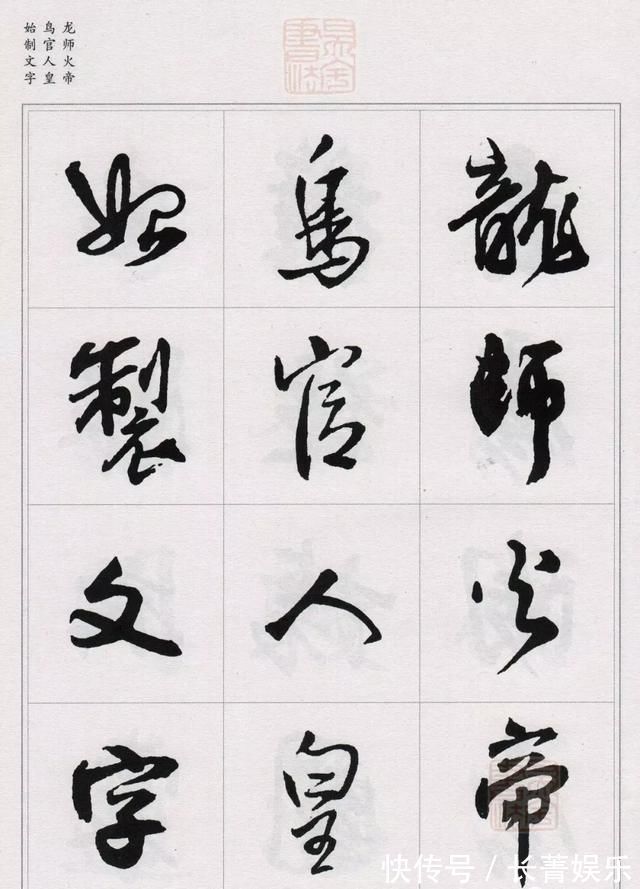 龙师火帝
鸟官人皇
始制文字
龍師火帝
鳥官人皇
始製文字
快传号／长菁娱乐